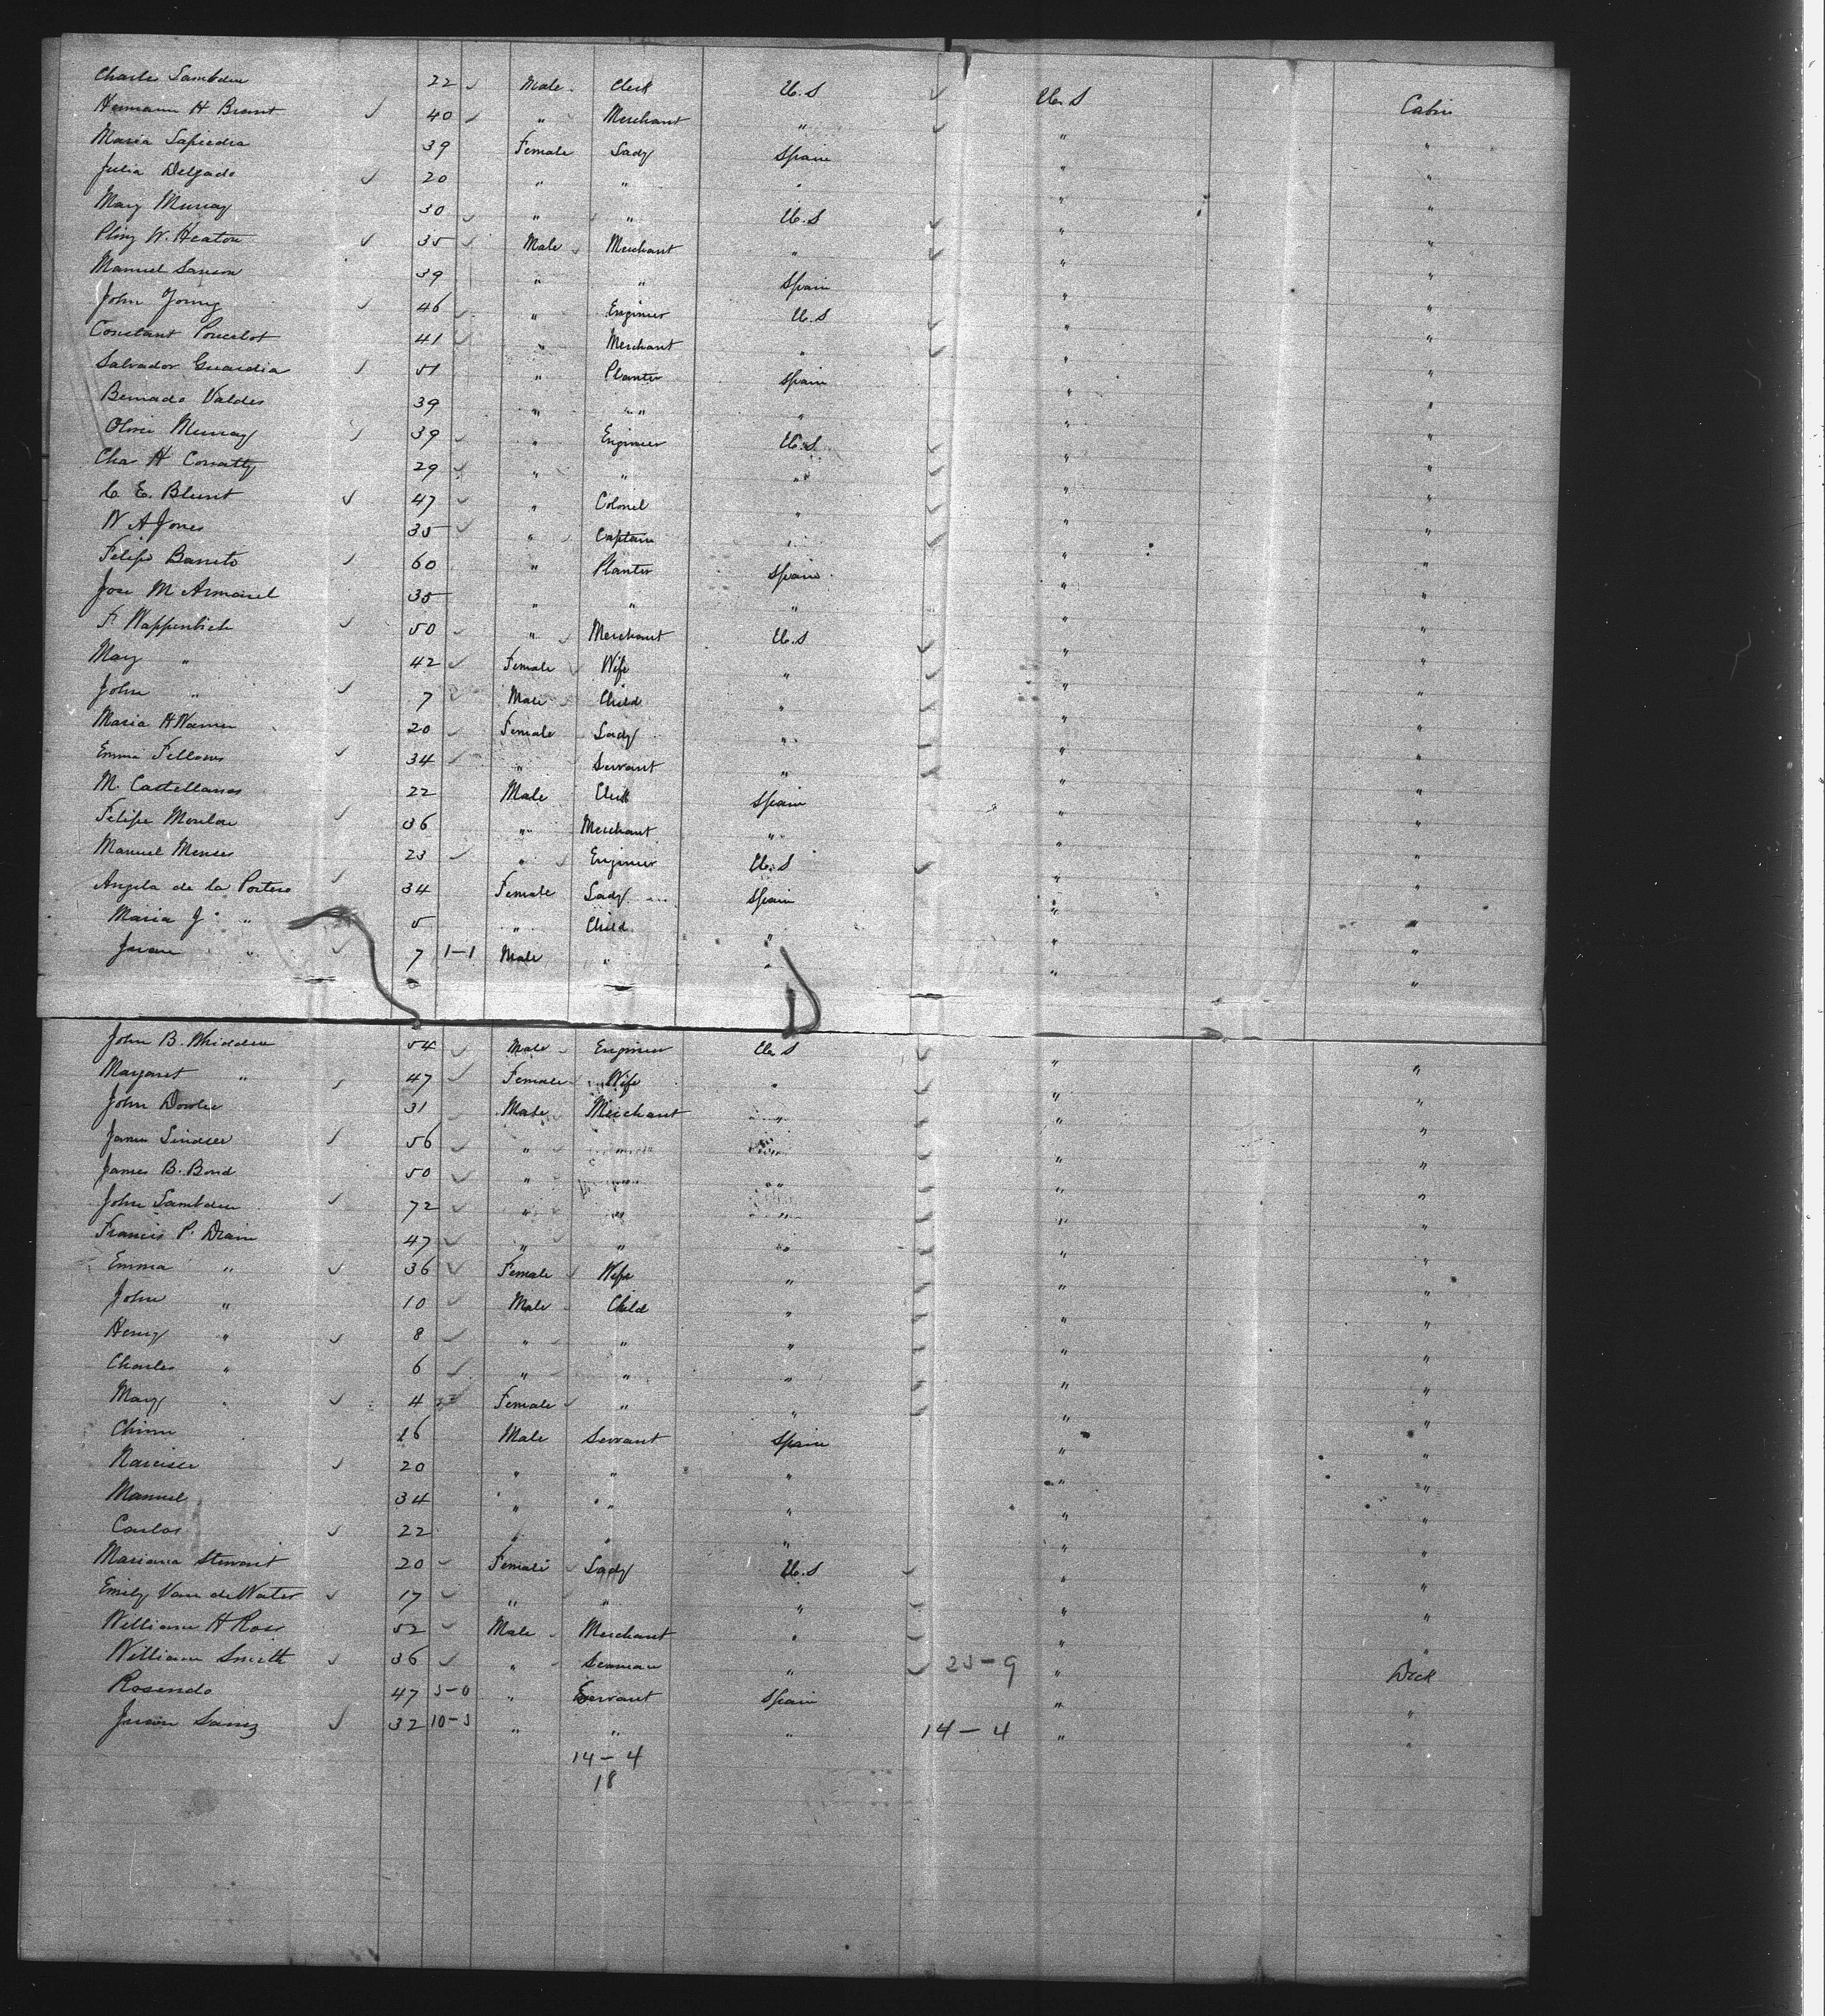 Charles Lambden 22 Male Clerk U.S U.S Cabin
Hermann H Brant 40 " Merchant " " "
Maria Lapiedra 39 Female Lady Spain " "
Julia Delgado 20 " " " " "
Mary Murray 30 " " U.S " "
Pliny W. Heaton 35 Male Merchant " " "
Manuel 39 " " Spain " "
John Young 46 " Engineer U.S " "
Constant Poucelot 41 " Merchant " " "
Salvador Guardia 51 " Planter Spain " "
Bernado Valdes 39 " " " " "
Oliver Murray 39 " Engineer U.S. " "
Chas H 29 " " " " "
C. E. Blunt 47 " Colonel " " "
W A Jones 35 " Captain " " "
Felipe Barreto 60 " Planter Spain " "
Jose M 35 " " " " "
F. 50 " Merchant U.S " "
Mary " 42 Female Wife " " "
John " 7 Male Child " " "
Maria H Warner 20 Female Lady " " "
Emma Fellows 34 " Servant " " "
M. Castellanos 22 Male Clerk Spain " "
Felipe 36 " Merchant " " "
Manuel Menses 23 " Engineer U.S " "
Angela de la Portero 34 Female Lady Spain " "
Maria J " 5 " Child " " "
Juan " 7 1-1 Male " " " "
D
John B. Whidden 54 Male Engineer U.S " "
Margaret " 47 Female Wife " " "
John 31 Male Merchant " " "
James 56 " " " " "
James B. Bond 50 " " " "
John Lambden 72 " " " " "
Francis P. Drain 47 " " " " "
Emma " 36 Female Wife " " "
John " 10 Male Child " " "
Henry " 8 " " " " "
Charles " 6 " " " " "
Mary " 4 Female " " " "
16 Male Servant Spain " "
Narcisse 20 " " " " "
Manuel 34 " " " " "
Carlos 22 " " " " "
Mariana Stewart 20 Female Lady U.S " "
Emily Van de Water 17 " " " " "
William H Ross 52 Male Merchant " " "
William Smith 36 " Seaman " 23-9 " Deck
Rosendo 47 3-0 " Servant Spain " "
Juan Sainz 32 10-3 " " " 14-4 " "
14-4
18